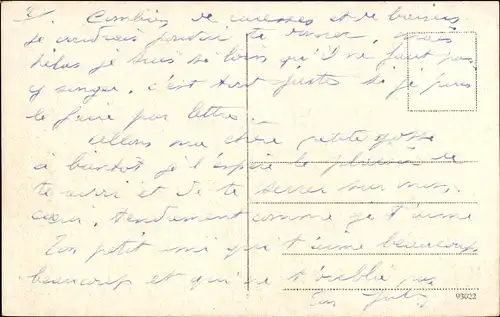 2/ Combien de caresses et de baisers
je voudrais pouvoir te donner, mais
hélas je suis si loin qu'il ne faut pas
y songer, c'est tout juste si je puis
le faire par lettre.
Allons ma chère petite gosse
à bientôt je l'espère le plaisir de
te et de te serrer sur mon
cœur, tendrement comme je t'aime
Ton petit ami qui t'aime beaucoup
beaucoup et qui ne t'oublie pas
Ton
03022